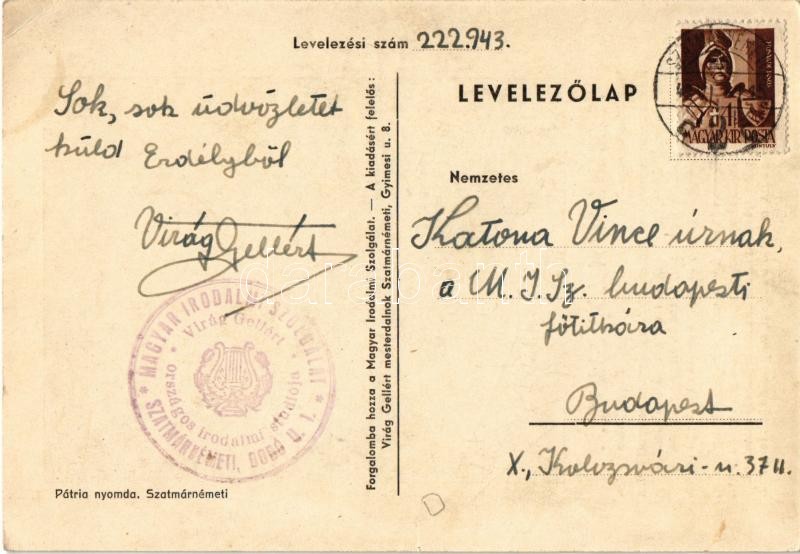 Levelezési szám 222.943.
Sok, sok üdvözletet
küld Erdélyből
Virág Gellért
MAGYAR IRODALMI SZOLGÁLAT
Virág Gellért
országos irodalmi stúdiója
SZATMÁRNÉMETI, DOBÓ U. 1.
Pátria nyomda. Szatmárnémeti
Forgalomba hozza a Magyar Irodalmi Szolgálat. — A kiadásért felelős:
Virág Gellért mesterdalnok Szatmárnémeti, Gyimesi u. 8.
LEVELEZŐLAP
MAGYAR KIR. POSTA
Nemzetes
Katona Vince úrnak,
a M.I.Sz. budapesti
főtitkára
Budapest
X., Kolozsvári-u. 37 II.
darabanth